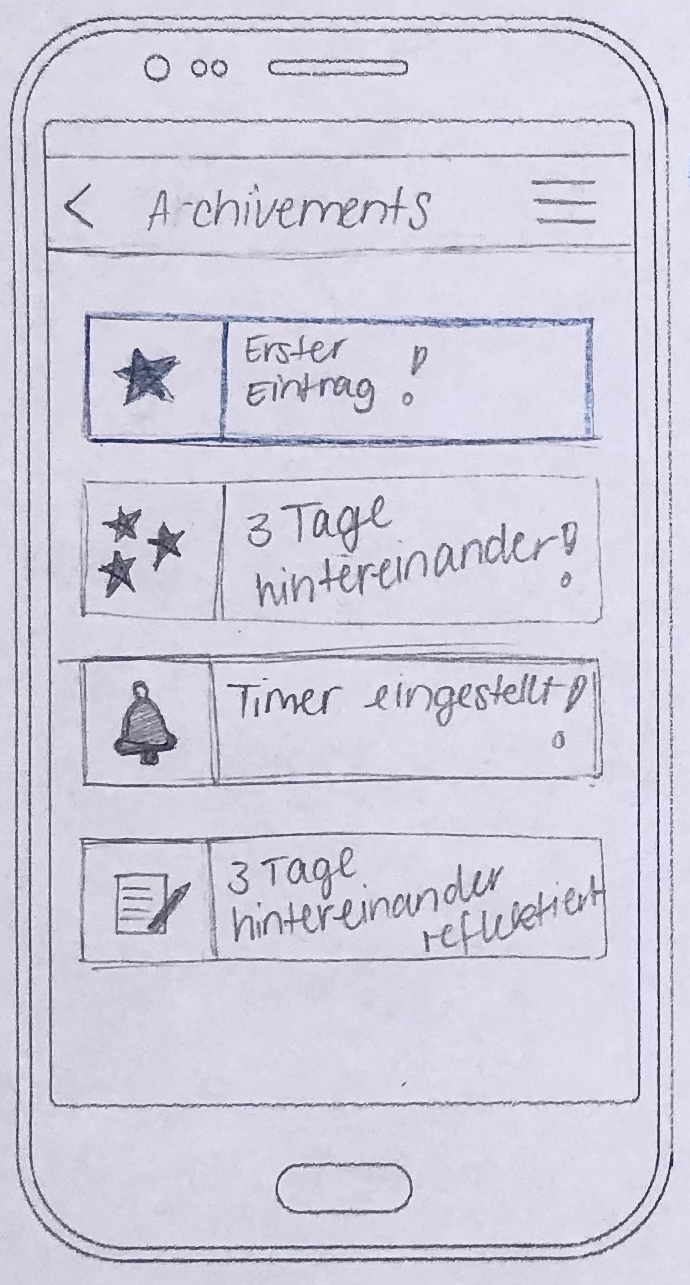 < Archivements
Erster
Eintrag !
3 Tage
hintereinander!
Timer eingestellt!
3 Tage
hintereinander
reflektiert